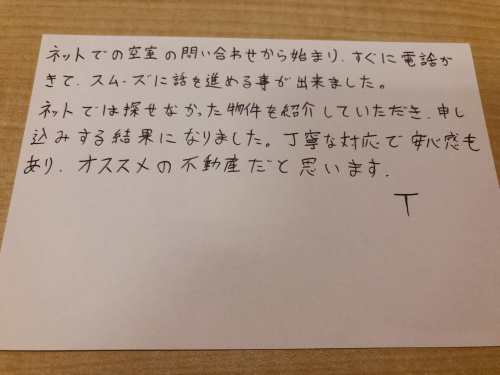 ネットでの空室の問い合わせから始まり、すぐに電話が
きて、スム・ズに話を進める事が出来ました。
ネットでは探せなかった物件を紹介していただき、申し
込みする結果になりました。丁寧な対応で安心感も
あり、オススメの不動産だと思います。
T